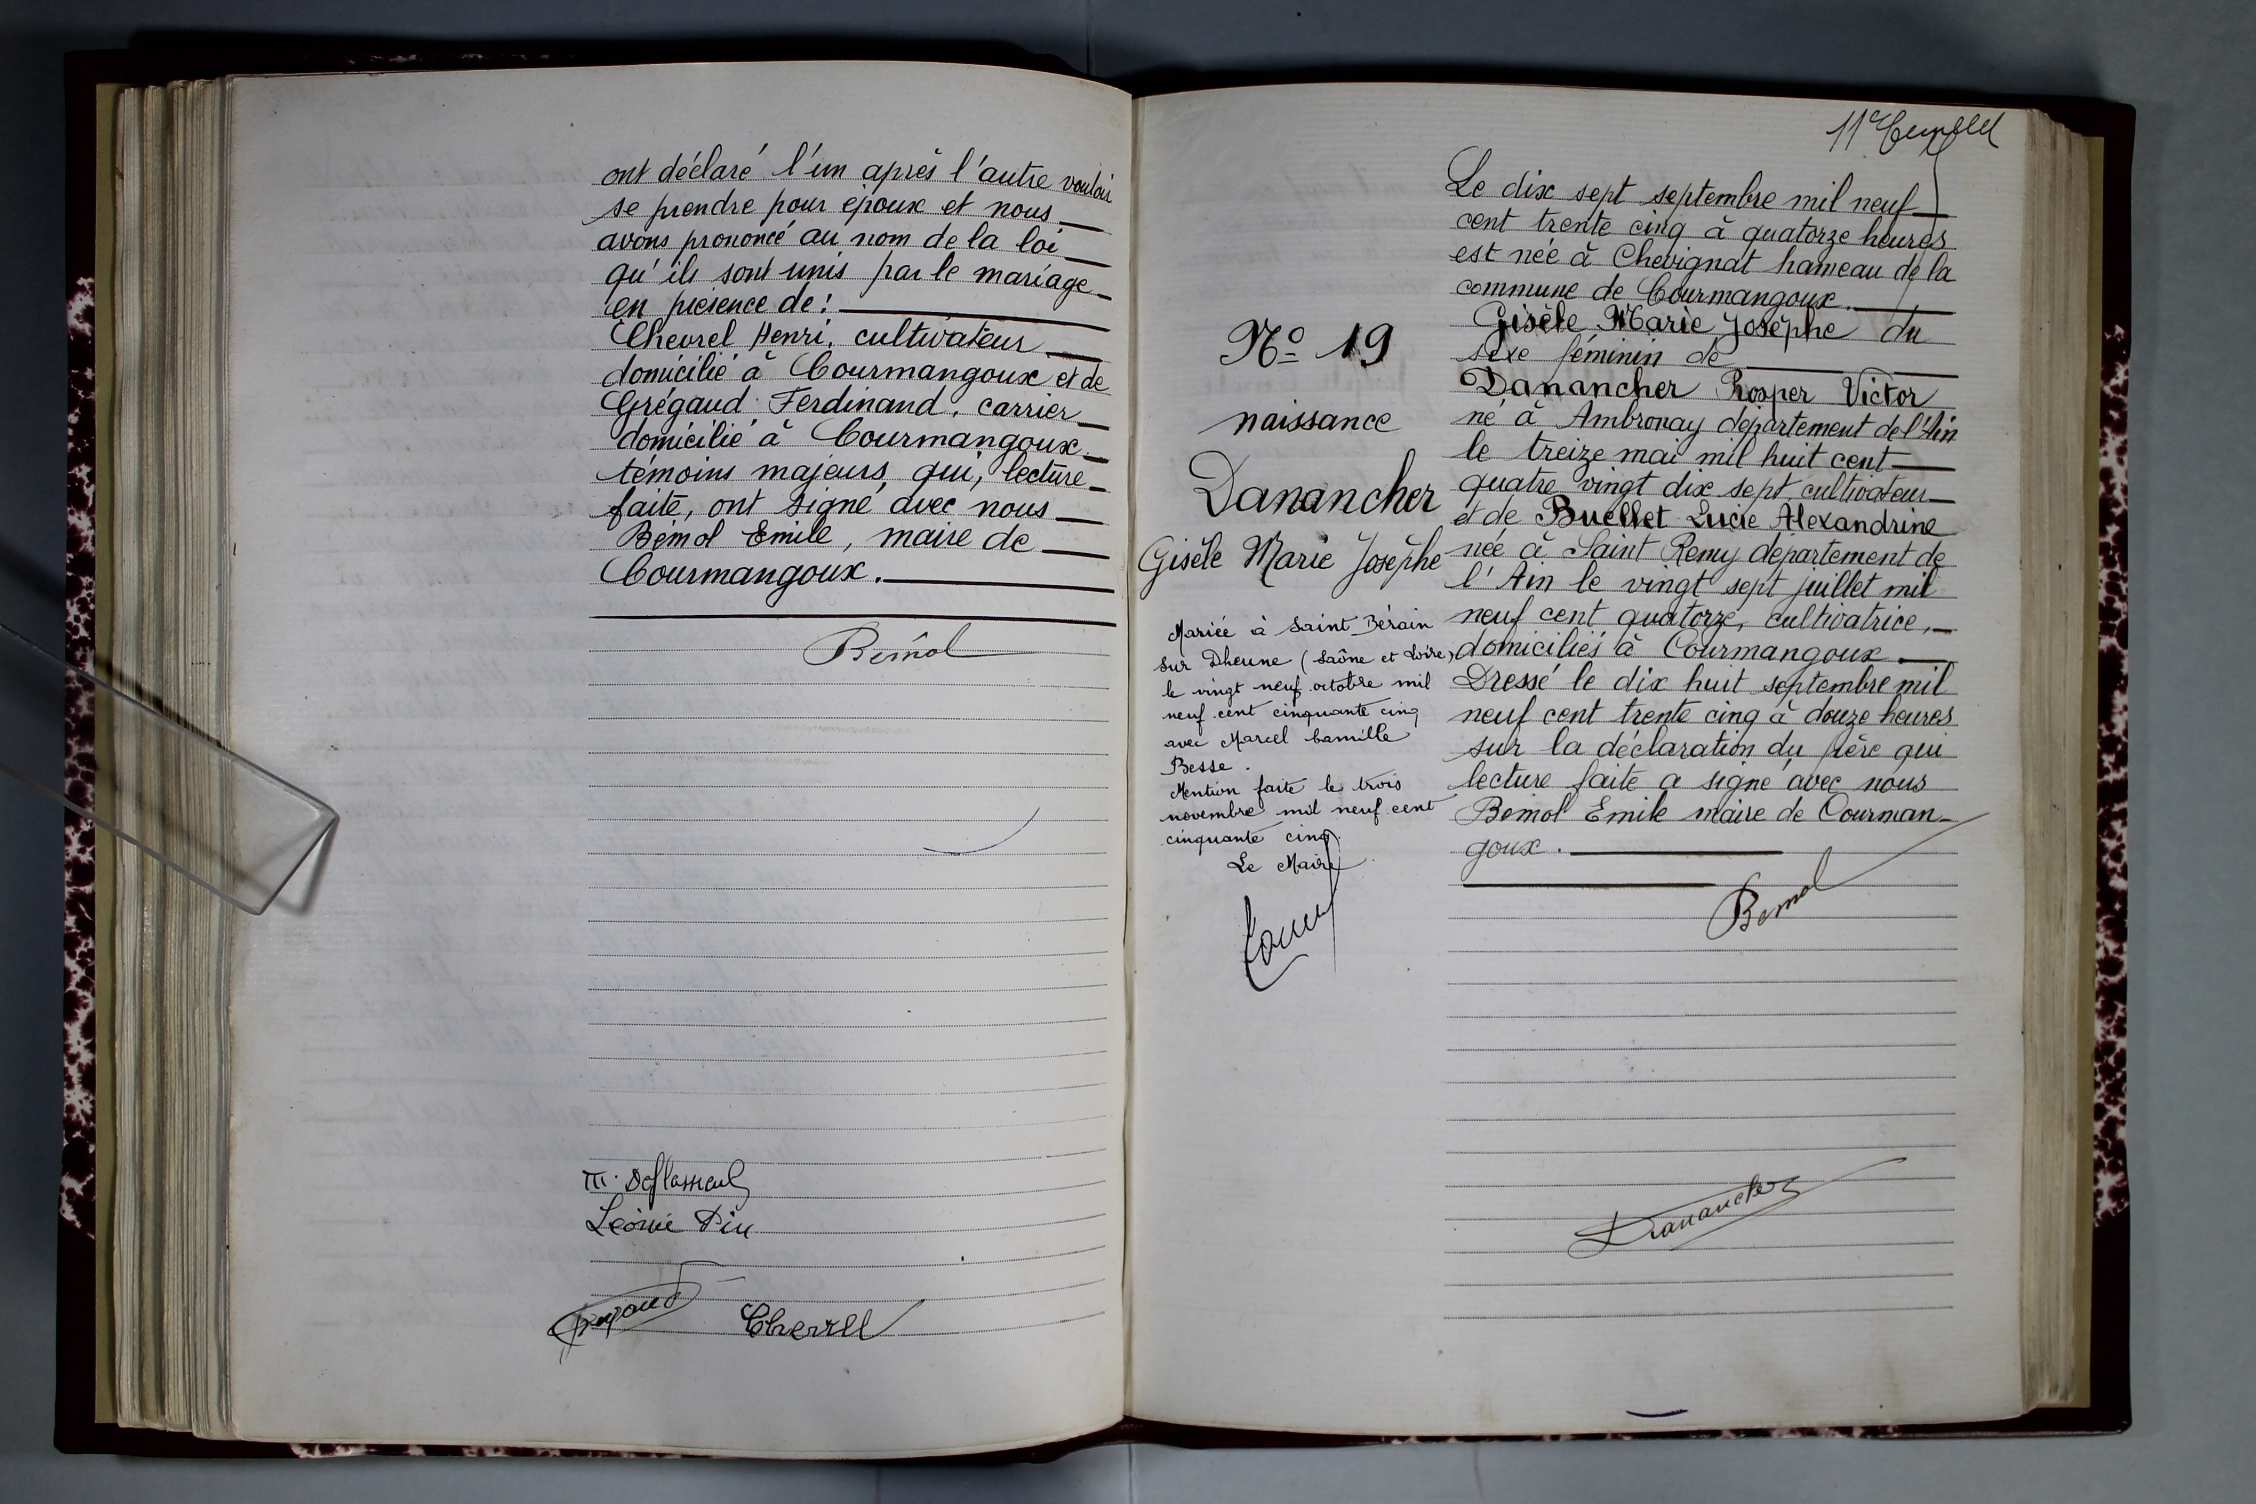 ont déclaré l'un après l'autre vouloir
se prendre pour époux et nous
avons prononcé au nom de la loi
qu'ils sont unis par le mariage
en présence de :
Chevrel Henri, cultivateur
domicilié à Courmangoux et de
Grégaud Ferdinand, carrier
domicilié à Courmangoux.
témoins majeurs, qui, lecture
faite, ont signé avec nous
Bémol Emile, maire de
Courmangoux.
Bémol
Léonie Piu
Chevrel
Le dix sept septembre mil neuf
cent trente cinq à quatorze heures
est née à Chevignat hameau de la
commune de Courmangoux.
Gisèle Marie Josèphe du
sexe féminin de
Danancher Prosper Victor
né à Ambronay département de l'Ain
le treize mai mil huit cent
quatre vingt dix sept, cultivateur
et de Buellet Lucie Alexandrine
née à Saint Remy département de
l'Ain le vingt sept juillet mil
neuf cent quatorze, cultivatrice,
domiciliés à Courmangoux
Dressé le dix huit septembre mil
neuf cent trente cinq à douze heures
sur la déclaration du père qui
lecture faite a signé avec nous
Bémol Emile maire de Courman-
goux.
Bemol
Danancher
No 19
naissance
Danancher
Gisèle Marie Josèphe
Mariée à Saint Bérain
sur Dheune (Saône et Loire)
le vingt neuf octobre mil
neuf cent cinquante cinq
avec Marcel Camille
Besse.
Mention faite le trois
novembre mil neuf cent
cinquante cinq.
Le Maire